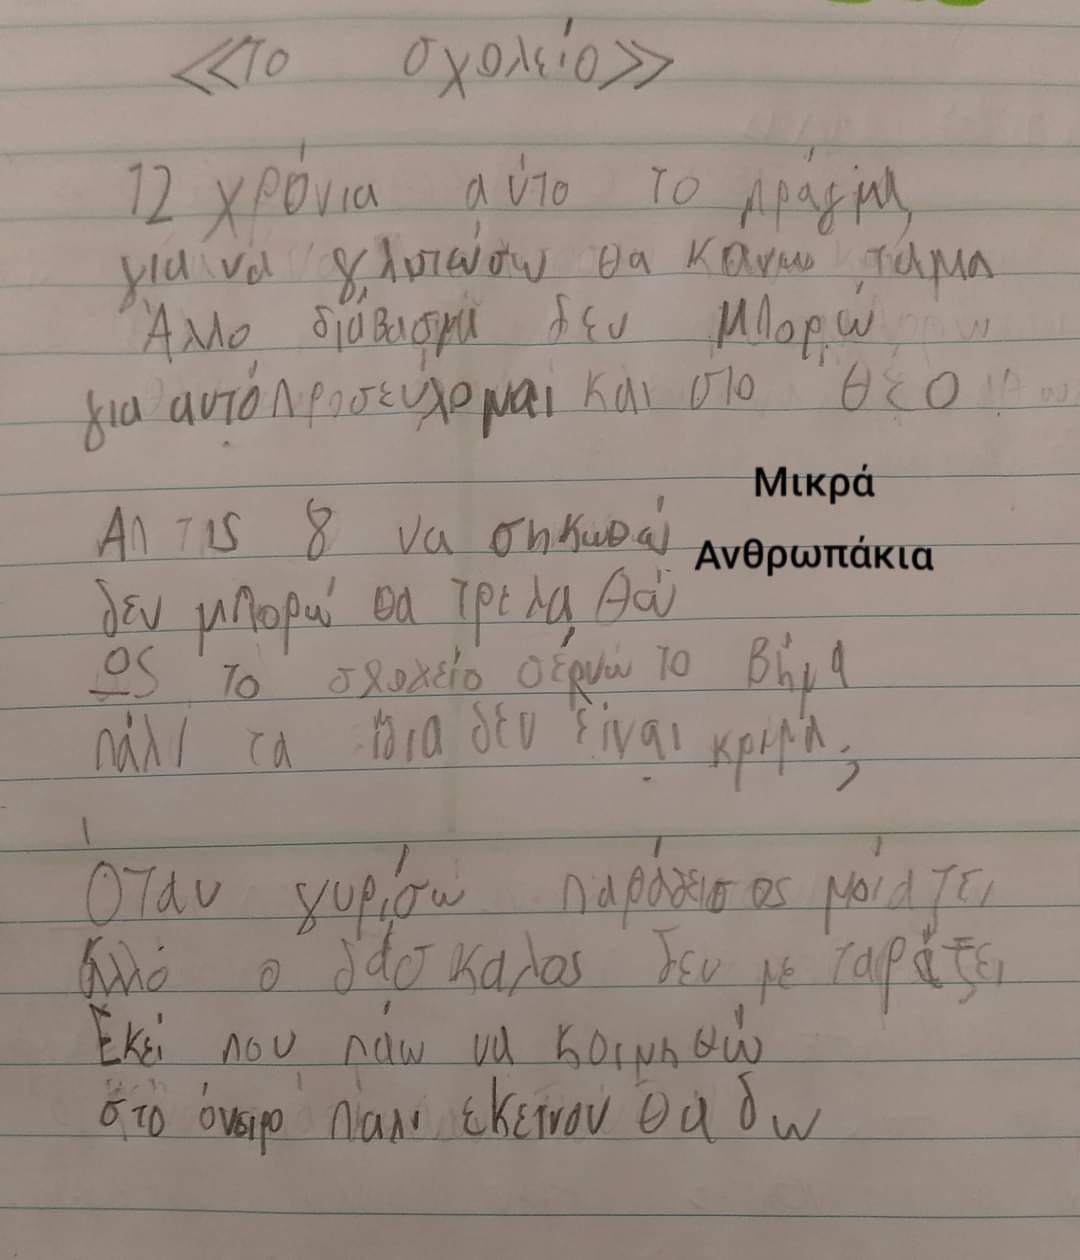 <<Το σχολείο>>
12 χρόνια αύτο το πράγμα,
για να γλυτώσω θα κανω ταμα
Άλλο διάβασμα δεν μπορώ
για αυτό προσεύχομαι και στο θεό
Απ τις 8 να σηκωθώ
Μικρά
Ανθρωπάκια
δεν μπορώ θα τρελαθώ
ος το σχολείο σέρνω το βήμα
πάλι τα ίδια δεν είναι κριμα;
Όταν γυρίσω παράδεισος μοιάζει
Αλλό ο δάσκαλος δεν με ταράζει
Εκεί που πάω να κοιμηθώ
στο όνειρο παλι εκεινον θα δω